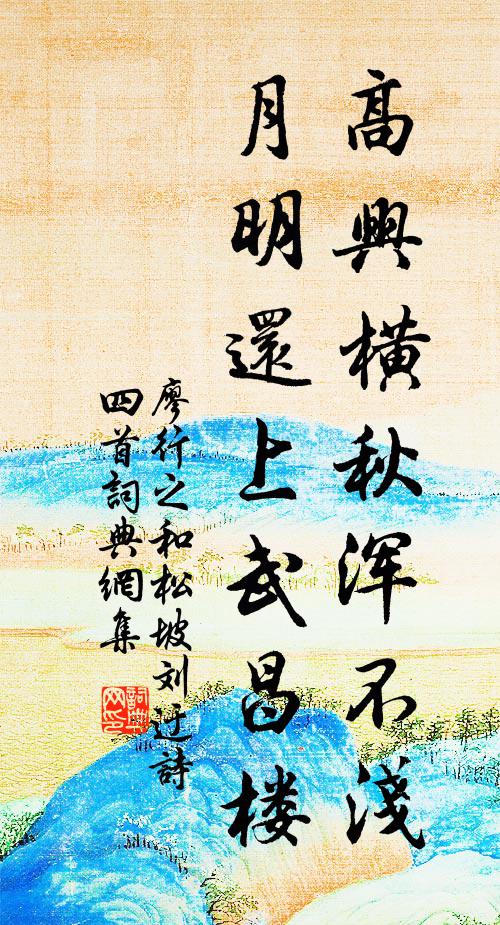 高興橫秋浑不淺
月明還上武昌楼
廖行之和松坡刘迓詩
四首詞典網集
詞典
网印